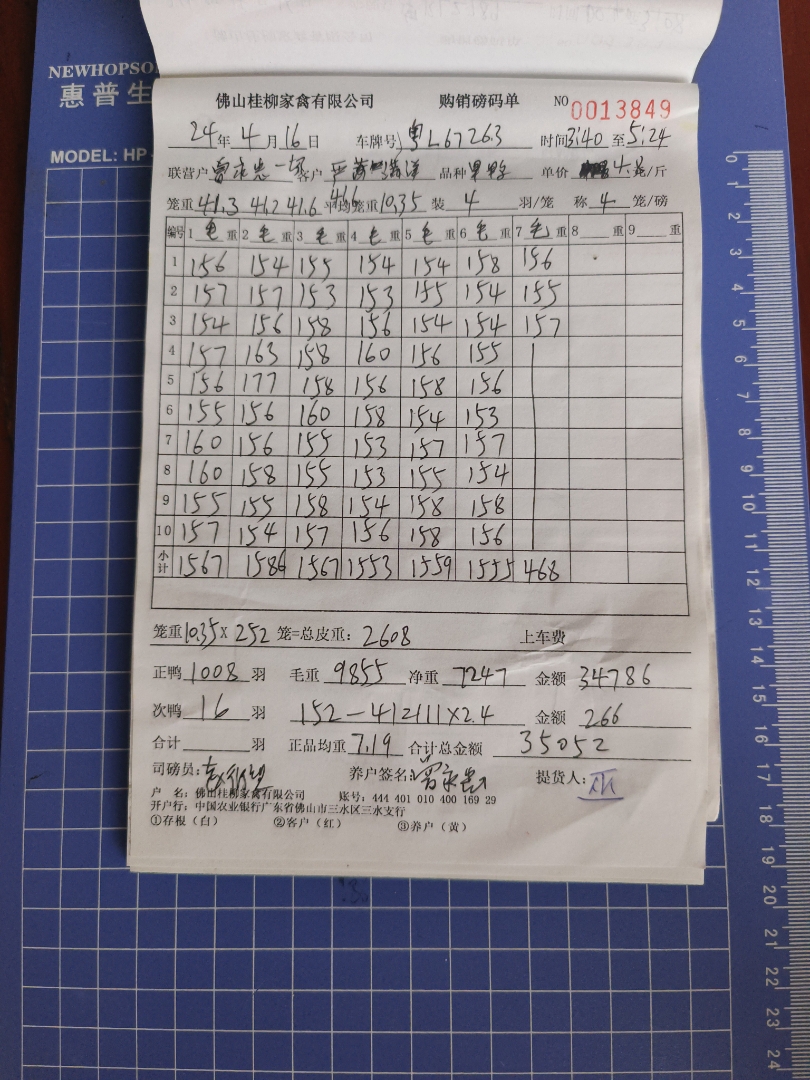 NEWHOPSO
惠普生
MODEL: HP
佛山桂柳家禽有限公司 购销磅码单 NO 0013849
24年4月16日 车牌号)粤L67263 时间3:40至5:24
联营户 曾永忠 客户 品种 单价 /斤
笼重 41.3 41.2 41.6 41.6 平均笼重10.35 装 4 羽/笼 称 4 笼/磅
编号 1 毛 重 2 毛 重 3 毛 重 4 毛 重 5 毛 重 6 毛 重 7 毛 重 8 重 9 重
1 156 154 155 154 154 158 156
2 157 157 153 153 155 154 155
3 154 156 158 156 154 154 157
4 157 163 158 160 156 155
5 156 177 158 156 158 156
6 155 156 160 158 154 153
7 160 156 155 153 157 157
8 160 158 155 153 155 154
9 155 155 158 154 158 158
10 157 154 157 156 158 156
小计 1567 1586 1567 1553 1559 1555 468
笼重10.35X 252 笼=总皮重: 2608 上车费
正鸭 1008 羽 毛重 9855 净重 7247 金额 34786
次鸭 16 羽 152-41 2111X2.4 金额 266
合计 羽 正品均重 7.19 合计总金额 35052
司磅员: 养户签名: 曾永忠 提货人:
户 名: 佛山桂柳家禽有限公司 账号: 444 401 010 400 169 29
开户行: 中国农业银行广东省佛山市三水区三水支行
①存根(白) ②客户(红) ③养户(黄)
0
1
2
3
4
5
6
7
8
9
10
11
12
13
14
15
16
17
18
19
20
21
22
23
24